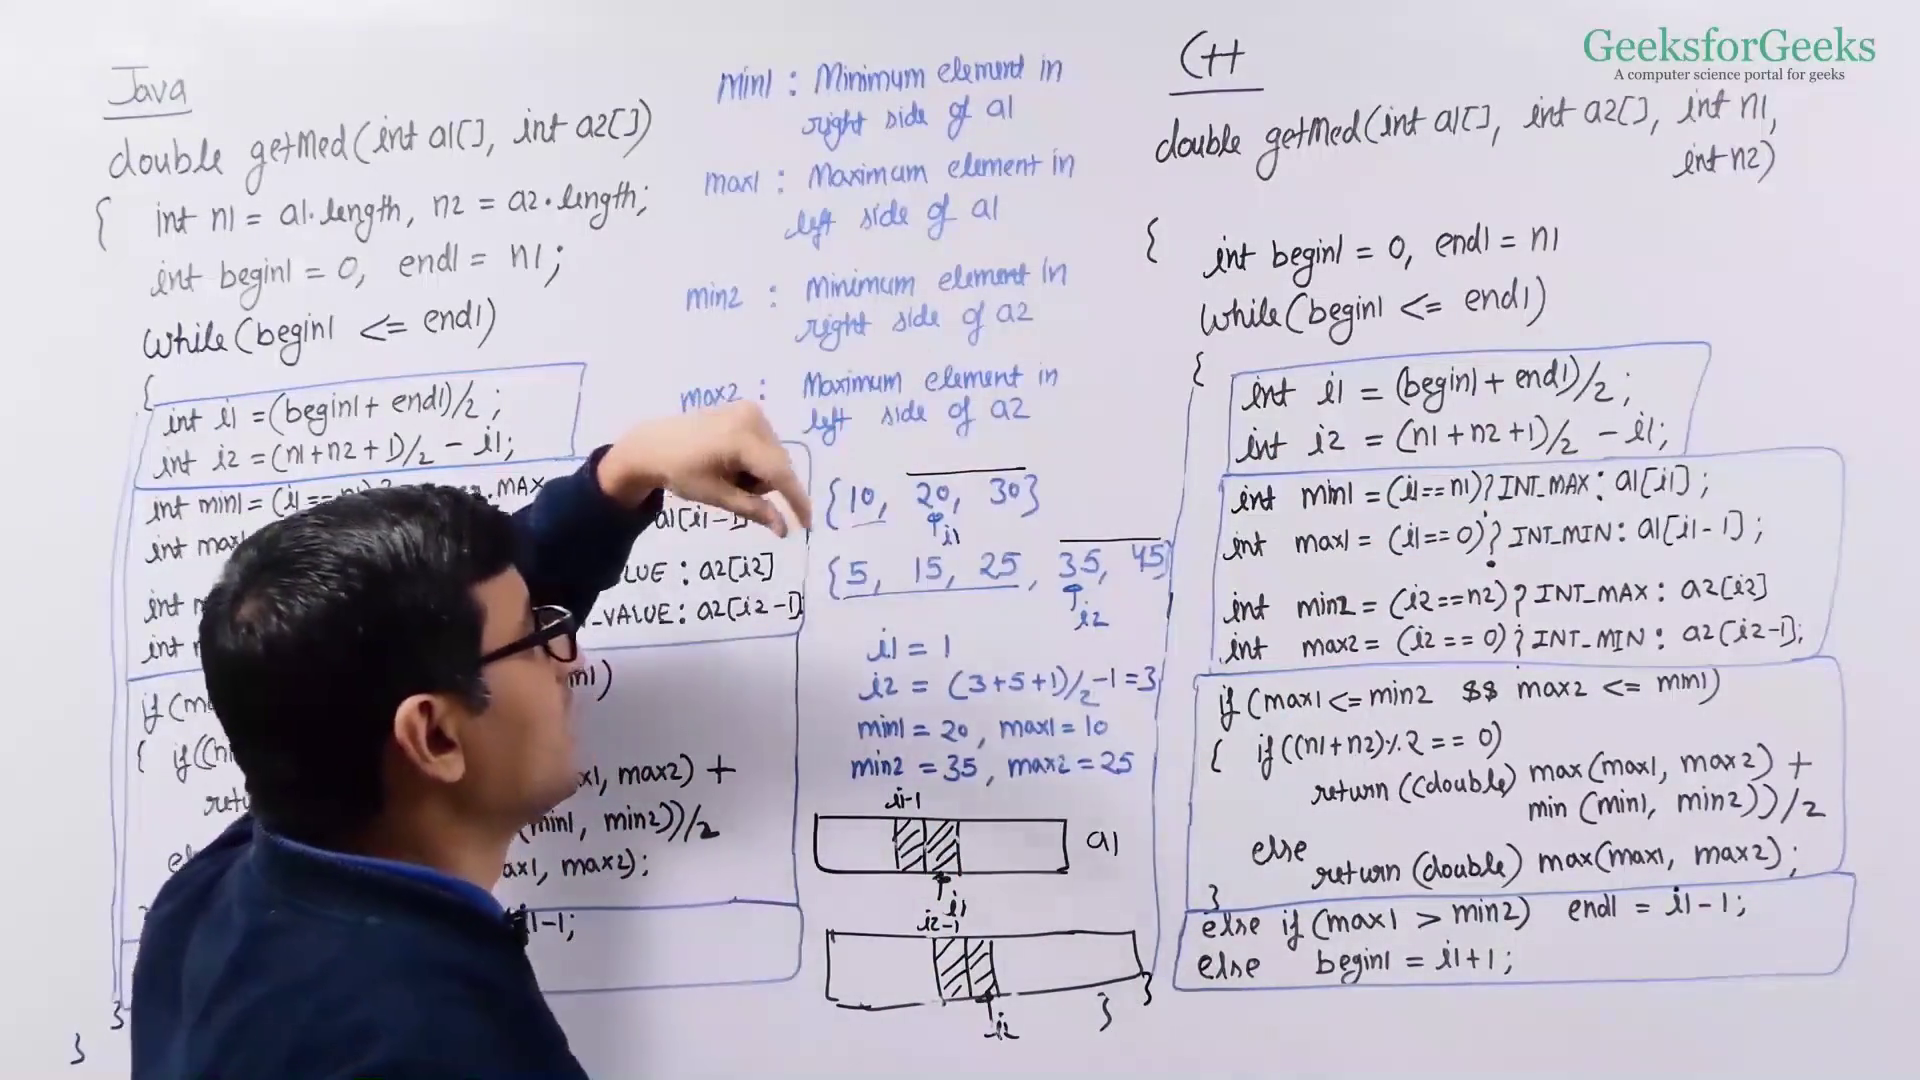 GeeksforGeeks
A computer science portal for geeks
Java
double getMed(int a1[], int a2[])
{ int n1 = a1.length, n2 = a2.length;
int begin1 = 0, end1 = n1;
while(begin1 <= end1)
{
int i1 = (begin1 + end1)/2;
int i2 = (n1+n2+1)/2 - i1;
int min1 = (i1==n1)? .MAX
int max a1[i1-1]
int LUE : a2[i2]
int _VALUE : a2[i2-1]
if(m min1)
{ if((n
retu x1, max2) +
(min1, min2))/2
el ax1, max2);
i1-1;
}
}
min1 : Minimum element in
right side of a1
max1 : Maximum element in
left side of a1
min2 : Minimum element in
right side of a2
max2 : Maximum element in
left side of a2
{10, 20, 30}
i1
{5, 15, 25, 35, 45
i2
i1 = 1
i2 = (3+5+1)/2-1=3
min1 = 20, max1 = 10
min2 = 35, max2 = 25
i1-1
a1
i1
i2-1
i2
} }
C++
double getMed(int a1[], int a2[], int n1,
int n2)
{ int begin1 = 0, end1 = n1
while(begin1 <= end1)
{
int i1 = (begin1 + end1)/2;
int i2 = (n1+n2+1)/2 - i1;
int min1 = (i1==n1)? INT_MAX : a1[i1];
int max1 = (i1==0)? INT_MIN : a1[i1-1];
int min2 = (i2==n2)? INT_MAX : a2[i2]
int max2 = (i2==0)? INT_MIN : a2[i2-1];
if(max1 <= min2 && max2 <= min1)
{ if((n1+n2)%2 == 0)
return ((double) max(max1, max2) +
min (min1, min2))/2
else
return (double) max(max1, max2);
}
else if(max1 > min2) end1 = i1-1;
else begin1 = i1+1;